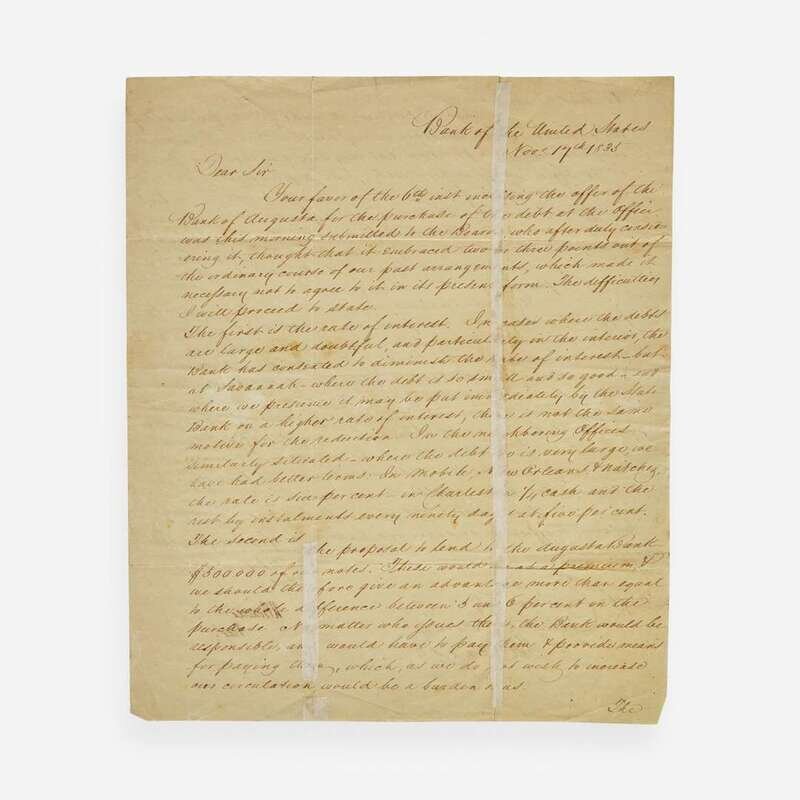 Bank of the United States
Nov. 17th 183
Dear Sir
Your favor of the 6th inst inclosing the offer of the
Bank of Augusta for the purchase of the debt at the Office
was this morning submitted to the Board, who after duly consid-
ering it, thought that it embraced two or three points out of
the ordinary course of our past arrangements, which made it
necessary not to agree to it in its present form. The difficulties
I will proceed to state.
The first is the rate of interest. In cases where the debts
are large and doubtful, and particularly in the interior, the
Bank has consented to diminish the rate of interest - but
at Savannah - where the debt is so small and so good - and
where we presume it may be put immediately by the State
Bank on a higher rate of interest, there is not the same
motive for the reduction. In the neighboring Offices
similarly situated - where the debt is very large, we
have had better terms. In Mobile, New Orleans & Natchez,
the rate is six per cent - in Charleston cash and the
rest by instalments every ninety days at five per cent.
The second is the proposal to lend to the Augusta Bank
$500000 of our notes. These would at a premium, &
we should therefore give an advantage more than equal
to the whole difference between 5 and 6 per cent on the
purchase. No matter who issues them, the Bank would be
responsible, and would have to pay them & provide means
for paying them, which, as we do not wish to increase
our circulation, would be a burden to us.
The